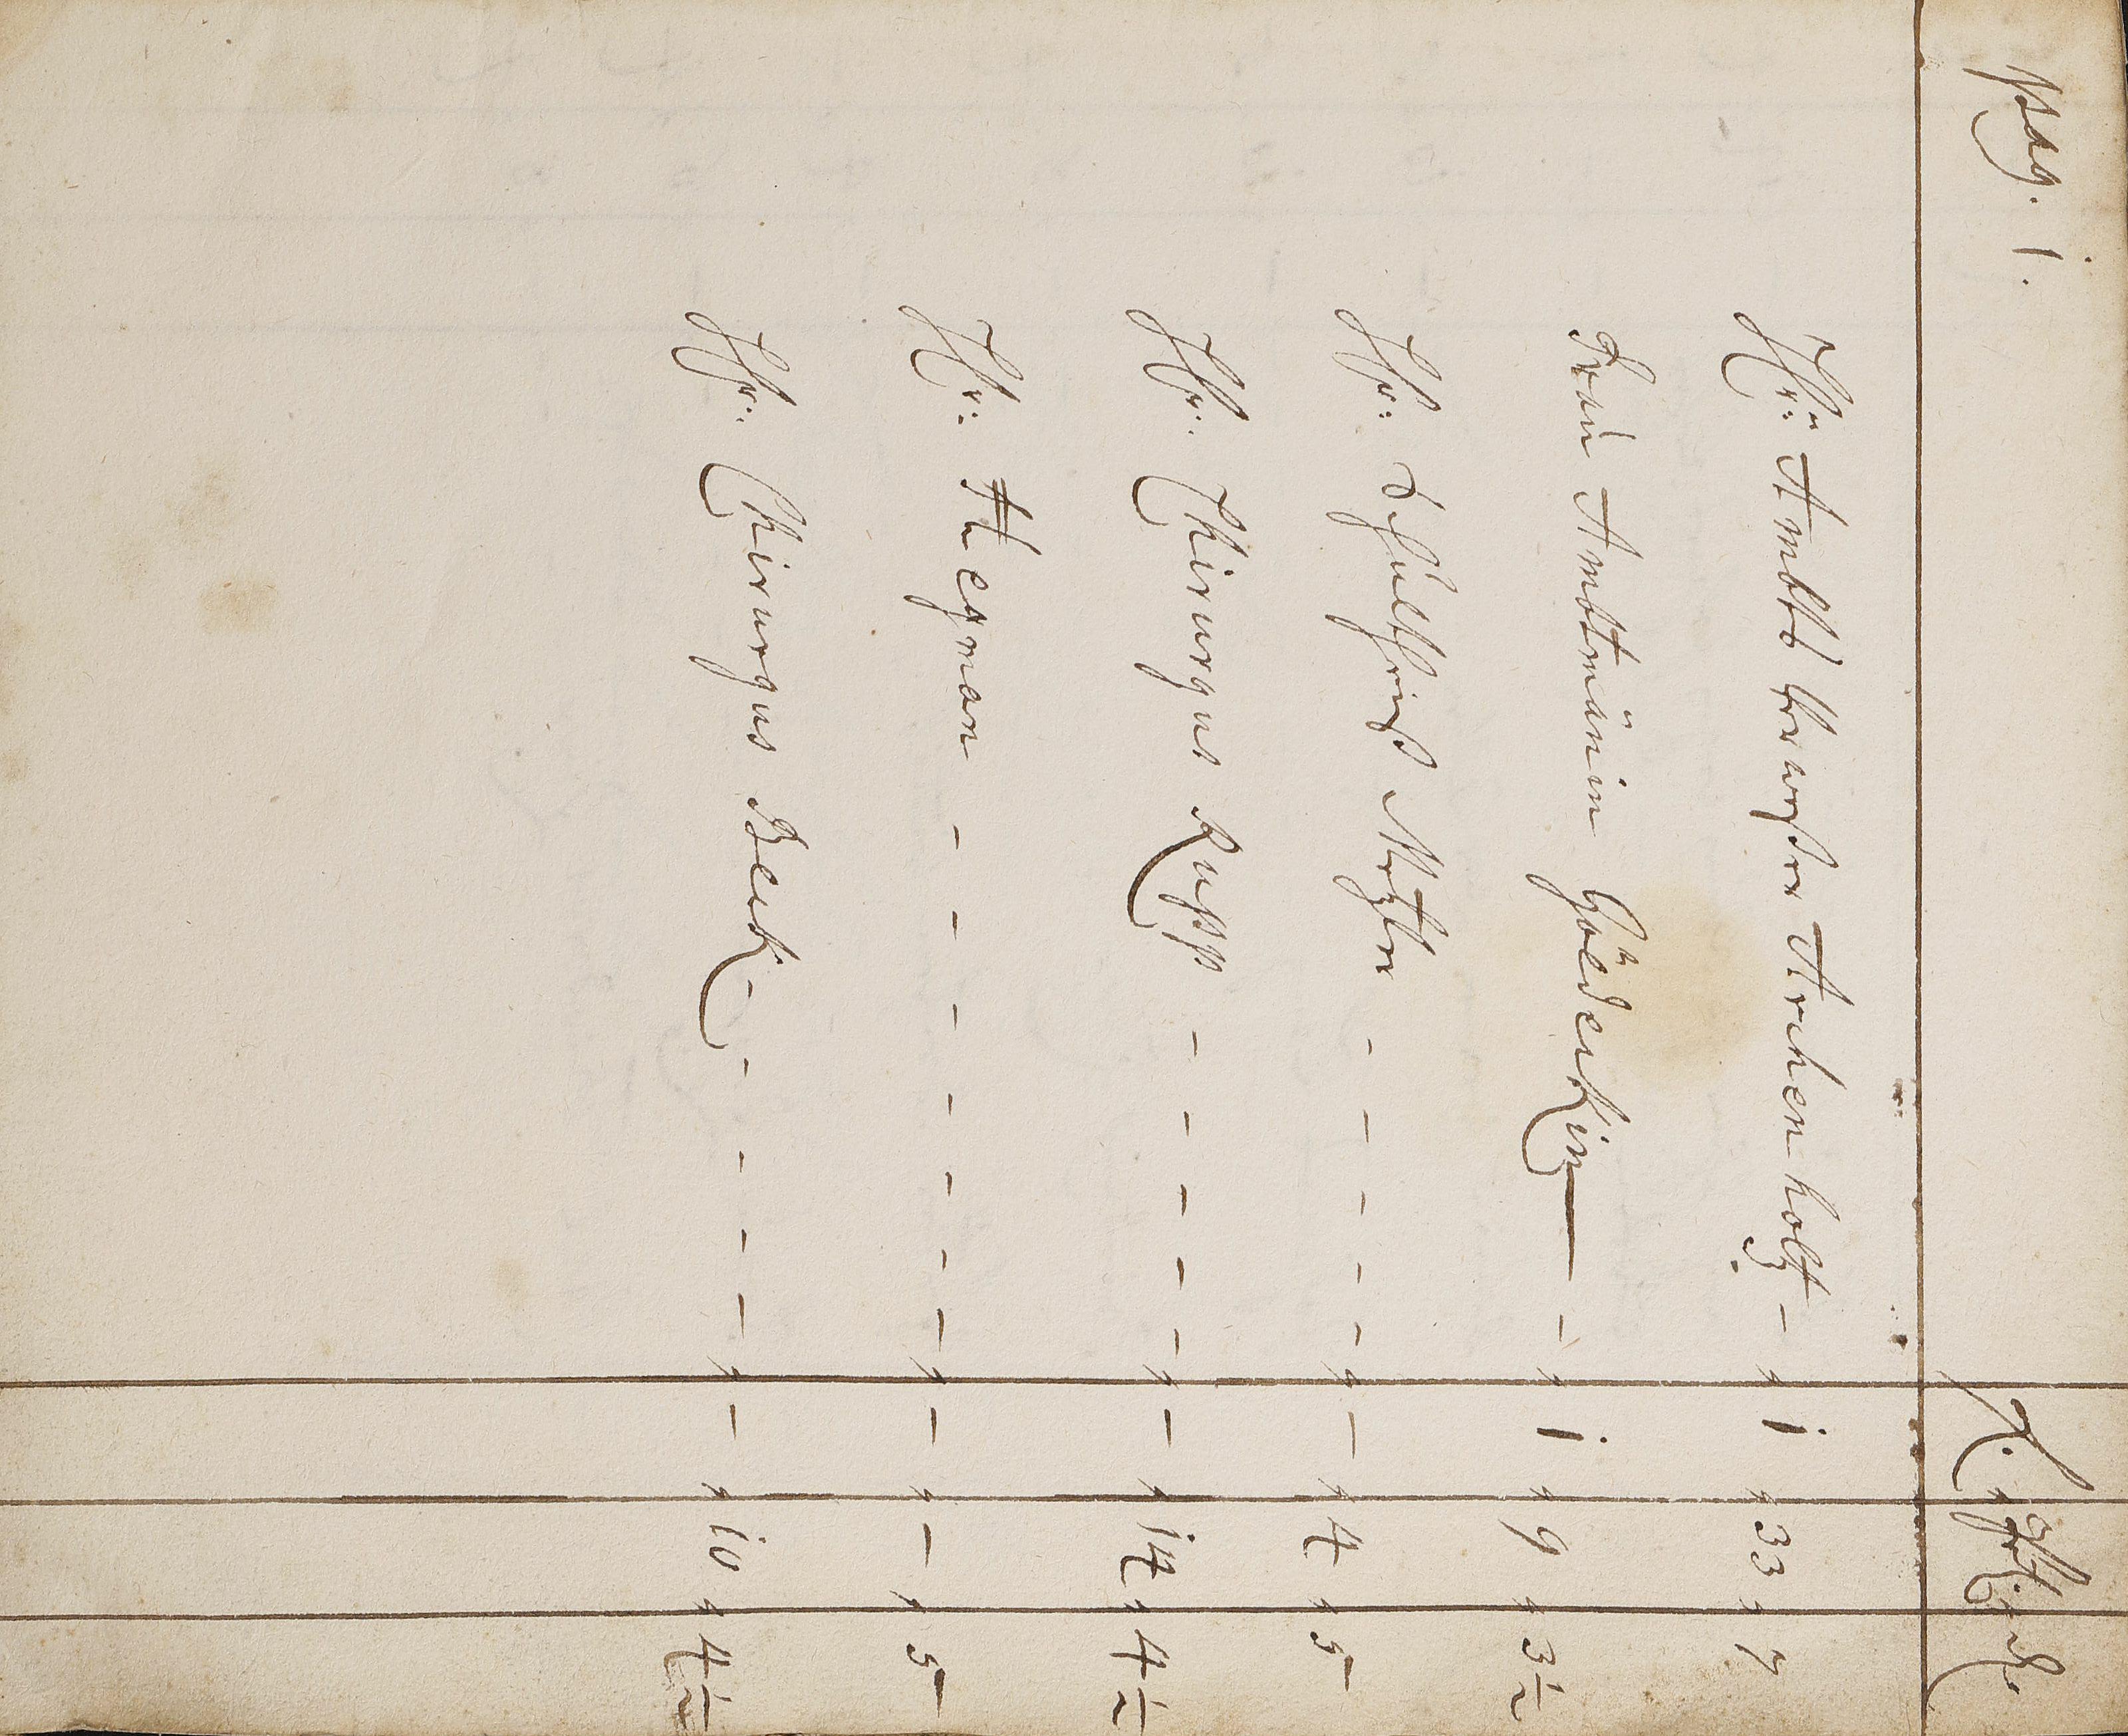 pag. 1.
Hr: Ambts Verweser Archenholtz - " 1 " 33 " 7
Frau Ambtmänin Gödeckin - - " 1 " 9 " 3 1/2
Hr: Schultheiß Metzler - - - - - " - " 4 " 5
Hr: Chirurgus Rupp - - - - - " - " 14 " 4 1/2
Hr: Hegman - - - - - - - " - " - " 5
Hr: Chirurgus Beck - - - - - " - " 10 " 4 1/2